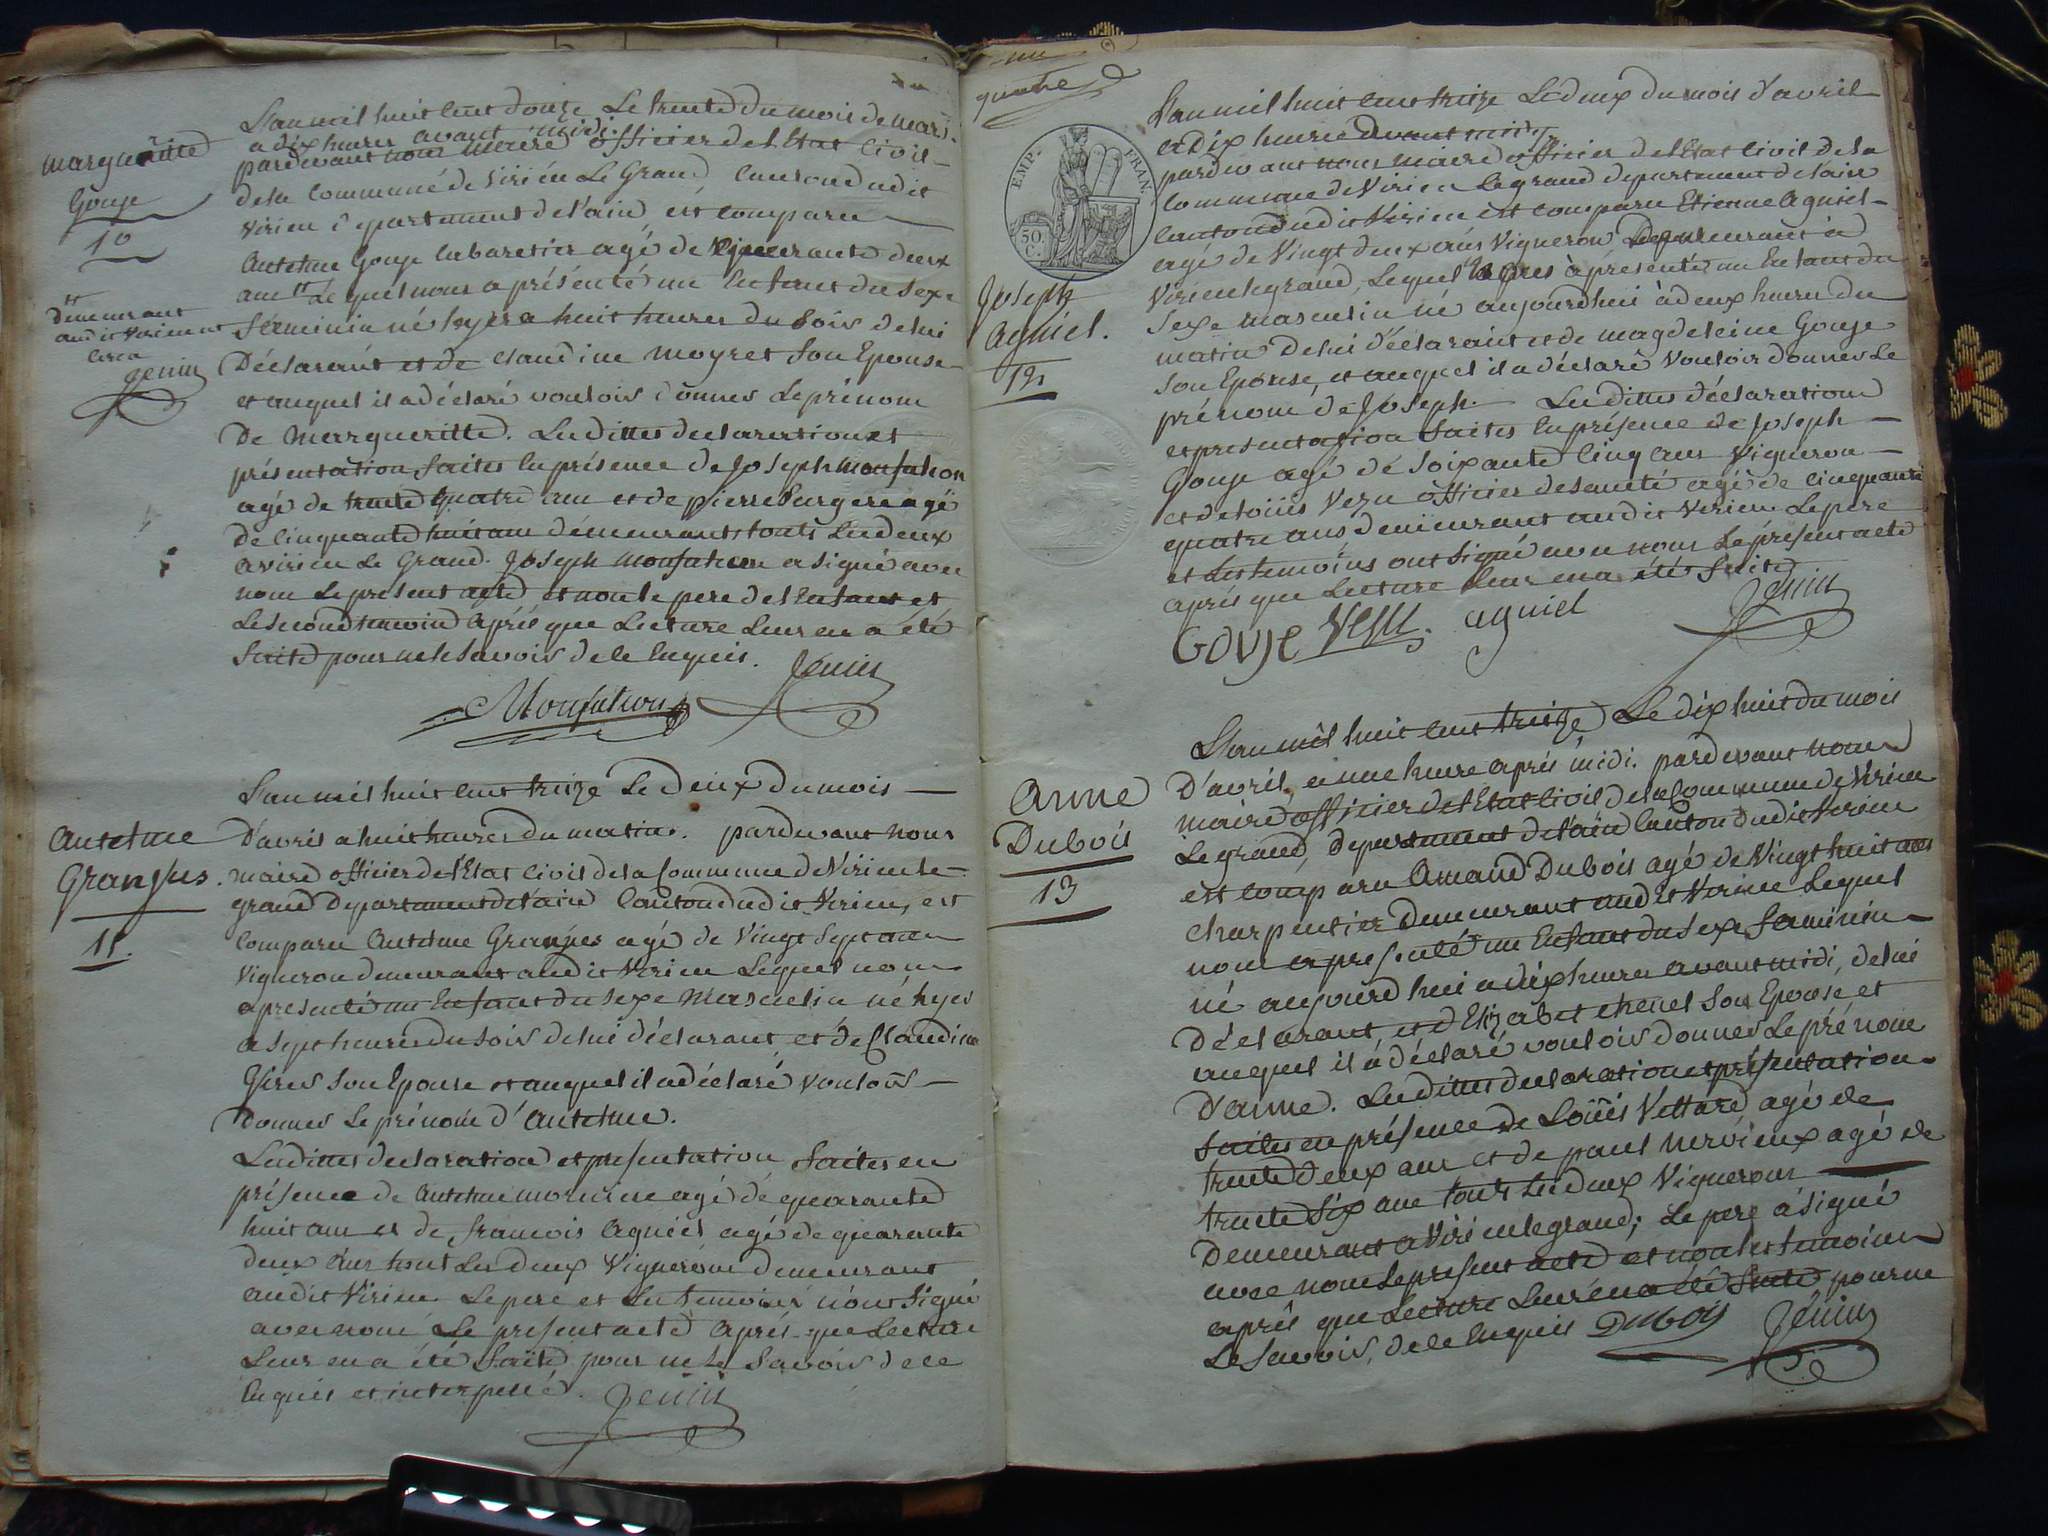 marguerite
Gouje
10
demeurant
audit Virieu
Jenin
L'an mil huit cent douze Le trente du mois de mars
a dix heures avant midi
pardevant nous maire officier de l'Etat Civil
de la Commune de Virieu Le Grand Canton dudit
Virieu Departement de l'ain, est comparu
Antelme Gouje Cabaretier agé de quarante deux
ans Lequel nous a présenté un Enfant du sexe
féminin né hyer a huit heures du soir de lui
Déclarant et de Claudine Moyret son Epouse
et auquel il a déclaré vouloir donner le prénom
De Margueritte. Les dittes declaration et
présentation faites en présence de Joseph Monfalcon
agé de trente quatre ans et de pierre Burgere agé
de cinquante huit ans demeurants touts Les deux
a virieu Le Grand. Joseph Monfalcon a signé avec
nous Le present acte et non le pere de l'Enfant et
Le second temoin après que Lecture Leur en a été
faite pour ne le savoir de ce Enquis. Jenin
Monfalcon
Antelme
Granjus.
11.
L'an mil huit cent treize Le deux du mois
D'avril a huit heures du matin. pardevant nous
maire officier de l'Etat Civil de la Commune de Virieu le
grand Departement de l'ain Canton dudit Virieu, est
Comparu Antelme Granjus agé de Vingt Sept ans
Vigneron demeurant audit Virieu Lequel nous
a presenté un Enfant du sexe Masculin né hyer
a sept heures du soir de lui déclarant et de Claudine
son Epouse et auquel il a déclaré vouloir
Donner Le prénom d'Antelme.
Les dittes declaration et presentation faites en
présence de Antelme agé de quarante
huit ans et de françois Agniel agé de quarante
deux ans tout Les deux Vignerons demeurant
audit Virieu Le pere et Les temoins n'ont signé
avec nous Le present acte Après que Lecture
Leur en a été faite pour ne Le Savoir de ce
Enquis et interpellé. Jenin
quatre
EMP. FRAN.
50. C.
Joseph
Agniel.
12
L'an mil huit cent treize Le deux du mois d'avril
a Dix heures devant midi
pardevant nous maire officier de l'Etat Civil de la
Commune de Virieu Le grand departement de l'ain
Canton dudit Virieu est comparu Etienne Agniel
agé de Vingt deux ans Vigneron Demeurant à
Virieu le grand, Lequel a présenté un Enfant du
Sexe masculin né aujourdhui à deux heures du
matin de lui déclarant et de magdeleine Gouje
Son Epouse, et auquel il a déclaré Vouloir donner Le
prénom de Joseph. Les dittes déclaration
et presentation faites En présence de Joseph
Gouje agé de soixante Cinq ans Vigneron
et de Loüis Vezu officier de santé agé de cinquante
quatre ans demeurant audit Virieu Le pere
et Les temoins ont signé avec nous Le présent acte
après que Lecture Leur en a été faite
Gouje Vezu. agniel Jenin
Anne
Dubois
13
L'an mil huit cent treize Le dix huit du mois
D'avril, a une heure après midi. pardevant nous
maire officier de l'Etat Civil de la Commune de Virieu
Le grand, departement de l'ain Canton dudit Virieu
est comparu Amand Dubois agé de Vingt huit ans
charpentier Demeurant audit Virieu Lequel
nous a presenté un Enfant du Sexe faminin
né aujourd'hui a dix heures avant midi, de lui
Déclarant et d'Elizabet chenet Son Epouse, et
auquel il à déclaré vouloir donner Le prénom
D'anne. Les dittes declaration et présentation
faites en présence de Loüis Vettard agé de
trente deux ans et de paul nervieux agé de
trente Six ans touts Les deux Vignerons
Demeurant a Virieu le grand; Le pere à signé
avec nous Le present acte et non les temoins
après que Lecture Leur en a été faite pour ne
Le Savoir, de ce Enquis Dubois Jenin